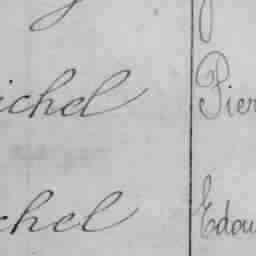 ichel Pier
chel Edou